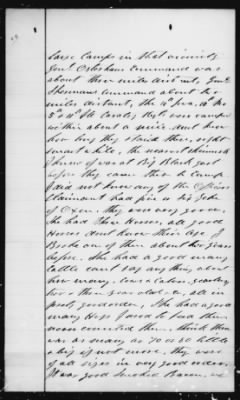 large Camp in that vicinity
Genl Osterhaus Command was
about three miles distant, Genl
Shermans Command about two
miles distant, the 4th Iowa, 10th Mo
5th & 11th Ills Cavalry Regts were camped
within about a mile. dont know
how long they staid there, eight
was at Big Black just
before they came there to Camp.
I did not know any of the Officers
Claimant had five or six Yoke
of Oxen. they were very good.
She had three Horses, all good
Horses dont know their age I
Broke one of them about two years
before. She had a good many
Cattle cant say any thing about
how many, Cows & Calves, yearlings
two & three year olds &c, all in
pretty good order, She had a good
many Hogs I used to feed them
never counted them, think there
was as many as 70 or 80 little
& big if not more, they were
of all sizes in very good order,
It was good Smoked Bacon, we